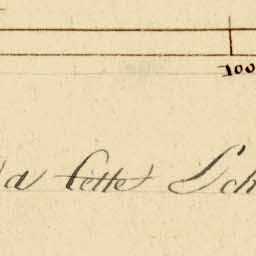 100
a cette Ech